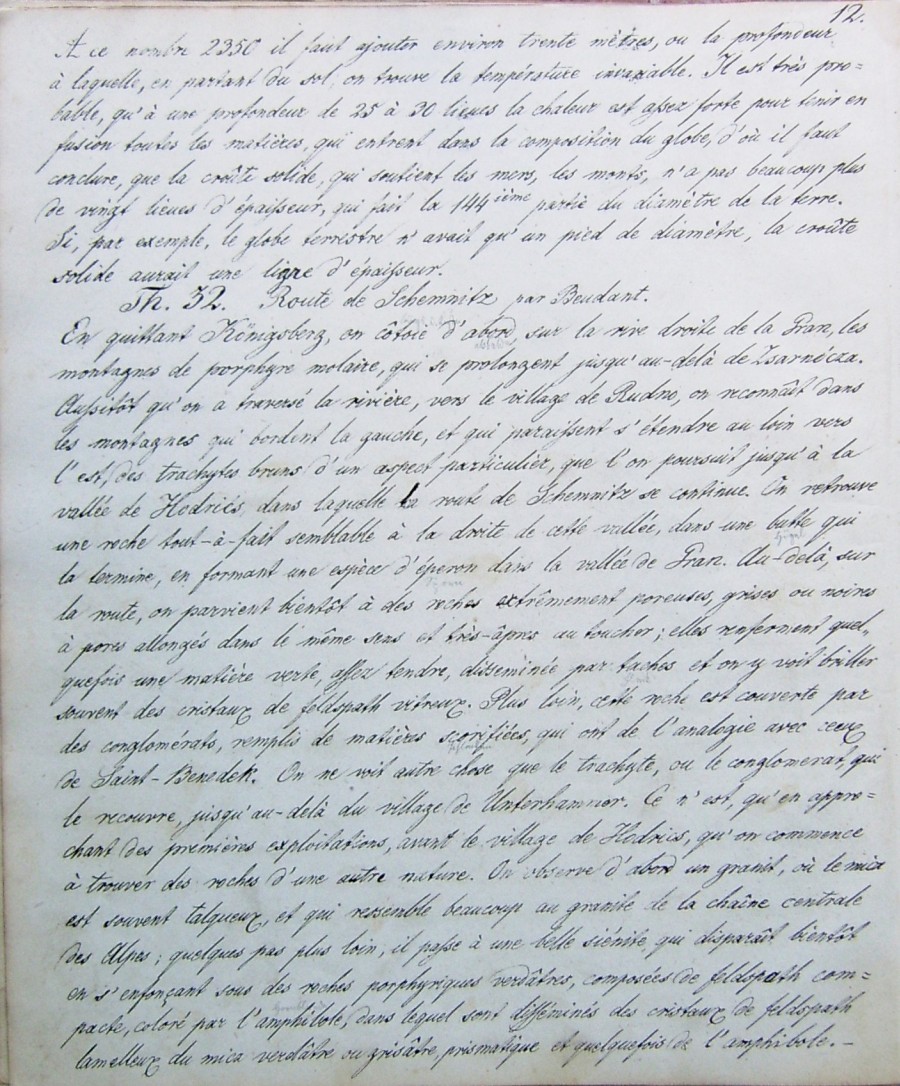 12.
A ce nombre 2350 il faut ajouter environ trente mètres, ou la profondeur
à laquelle, en partant du sol, on trouve la température invariable. Il est très pro=
bable, qu'à une profondeur de 25 à 30 lieues la chaleur est assez forte pour tenir en
fusion toutes les matières, qui entrent dans la composition du globe, d'où il faut
conclure, que la croûte solide, qui soutient les mers, les monts, n'a pas beaucoup plus
de vingt lieues d'épaisseur, qui fait la 144ième partie du diamètre de la terre.
Si, par exemple, le globe terrestre n'avait qu'un pied de diamètre, la croûte
solide aurait une ligne d'épaisseur.
Th. 32. Route de Schemnitz par Beudant.
En quittant Königsberg, on côtoie d'abord sur la rive droite de la Gran, les
montagnes de porphyre molaire, qui se prolongent jusqu'au-delà de Zsarnócza.
Aussitôt qu'on a traversé la rivière, vers le village de Rudno, on reconnaît dans
les montagnes qui bordent la gauche, et qui paraissent s'étendre au loin vers
l'est, des trachytes bruns d'un aspect particulier, que l'on poursuit jusqu'à la
vallée de Hodrics, dans laquelle la route de Schemnitz se continue. On retrouve
une roche tout-à-fait semblable à la droite de cette vallée, dans une butte qui
la termine, en formant une espèce d'éperon dans la vallée de Gran. Au-delà, sur
la route, on parvient bientôt à des roches extrêmement poreuses, grises ou noires
à pores allongés dans le même sens et très-âpres au toucher; elles renferment quel=
quefois une matière verte, assez tendre, disséminée par taches et on y voit briller
souvent des cristaux de feldspath vitreux. Plus loin, cette roche est couverte par
des conglomérats, remplis de matières scorifiées, qui ont de l'analogie avec ceux
de Saint-Benedek. On ne voit autre chose que le trachyte, ou le conglomerat, qui
le recouvre, jusqu'au-delà du village de Unterhammor. Ce n'est, qu'en appro=
chant des premières exploitations, avant le village de Hodrics, qu'on commence
à trouver des roches d'une autre nature. On observe d'abord un granit, où le mica
est souvent talqueux, et qui ressemble beaucoup au granite de la chaîne centrale
des Alpes; quelques pas plus loin, il passe à une belle siénite, qui disparaît bientôt
en s'enfonçant sous des roches porphyriques verdâtres, composées de feldspath com=
pacte, coloré par l'amphibole, dans lequel sont disséminés des cristaux de feldspath
lamelleux du mica verdâtre ou grisâtre, prismatique et quelquefois de l'amphibole. –